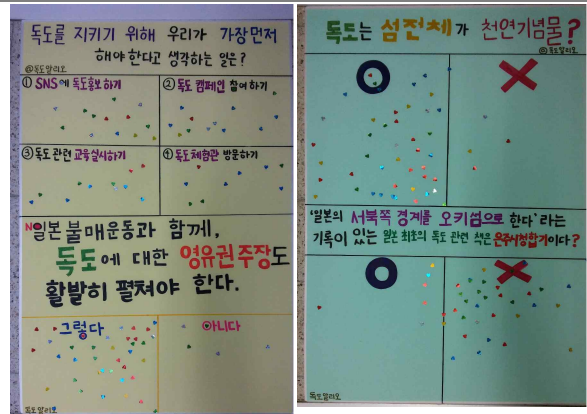 독도를 지키기 위해 우리가 가장먼저
해야 한다고 생각하는 일은?
@독도알리오
① SNS에 독도홍보하기
② 독도 캠페인 참여하기
③ 독도 관련 교육실시하기
④ 독도체험관 방문하기
NO일본 불매운동과 함께,
독도에 대한 영유권주장도
활발히 펼쳐야 한다.
그렇다
아니다
독도알리오
독도는 섬전체가 천연기념물?
@독도알리오
O
X
'일본의 서북쪽 경계를 오키섬으로 한다'라는
기록이 있는 일본 최초의 독도 관련 책은 은주시청합기이다?
O
X
독도알리오